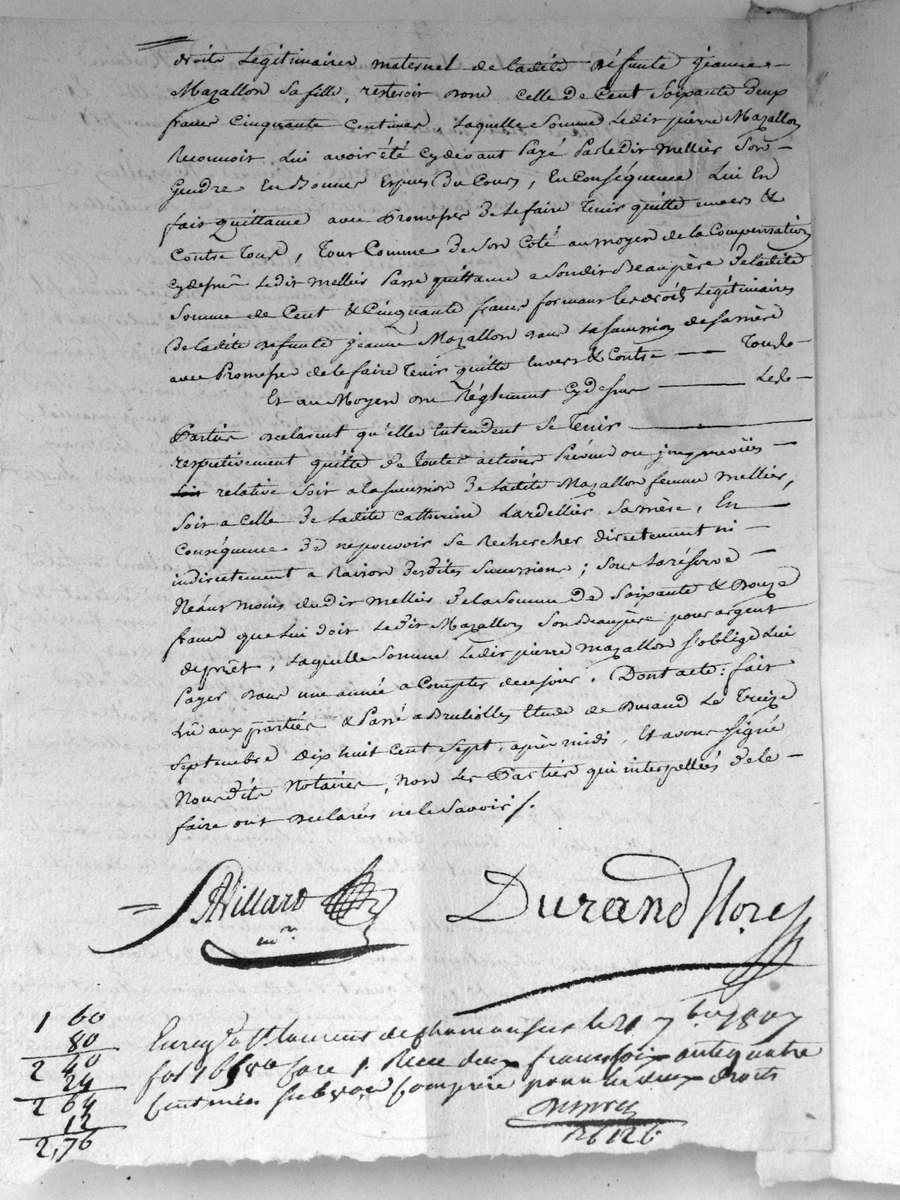 droits Légitimaires maternel de ladite deffunte jeanne
Mazallon sa fille, restoit donc celle de Cent soixante deux
francs Cinquante Centimes, laquelle somme Ledit pierre Mazallon
Reconnoit Lui avoir été cy devant Payé Par le dit Mellier Son
Gendre En Bonnes Espèces Du Cours, En Conséquence Lui En
fait quittance avec Promesses De le faire Tenir quitte envers &
Contre Tous, Tout Comme De Son Coté au moyen de la Compensation
cydessus Ledit Mellier Passe quittance a Son dit Beaupère De ladite
Somme de Cent & Cinquante francs formans les droits Légitimaires
De ladite deffunte jeanne Mazallon dans La succession de Sa mère
avec Promesse de le faire Tenir quitte Envers & Contre — Tous
Et au Moyen du Réglement Cy dessus — Les d.
Parties declarent qu'elles Entendent se Tenir —
respectivement quitte de Toutes actions Prévues ou jmprevües
relative Soit a la succession De Ladite Mazallon femme Mellier,
Soit a Celle De Ladite Catherine Lardellier Sa mère, En
Conséquence De ne pouvoir Se Rechercher directement ni
indirectement a Raison Desdites Successions; Sous la réserve
Néanmoins du dit Mellier De la Somme De Soixante & Douze
francs que Lui doit Le dit Mazallon Son Beaupère pour argent
de prêt, Laquelle Somme Le dit pierre Mazallon s'oblige Lui
Payer dans une année a Compter de ce jour. Dont acte: fait
Lû aux parties & Passé a Brullioles Etude de Durand Le Treize
Septembre dix huit Cent Sept, après midi, Et avons Signé
Nousdits Notaires, Non Les Parties qui interpellées de le
faire ont declarés ne le Savoir /.
Villard
Durand Nore
1 60
80
2 40
24
2 64
12
2,76
Enreg. à St laurent de chamousset le 21 7bre 1807
fol 168 Ro Case 1. Recu deux francs soixante quatre
Centimes subvon Comprise pour les deux droits